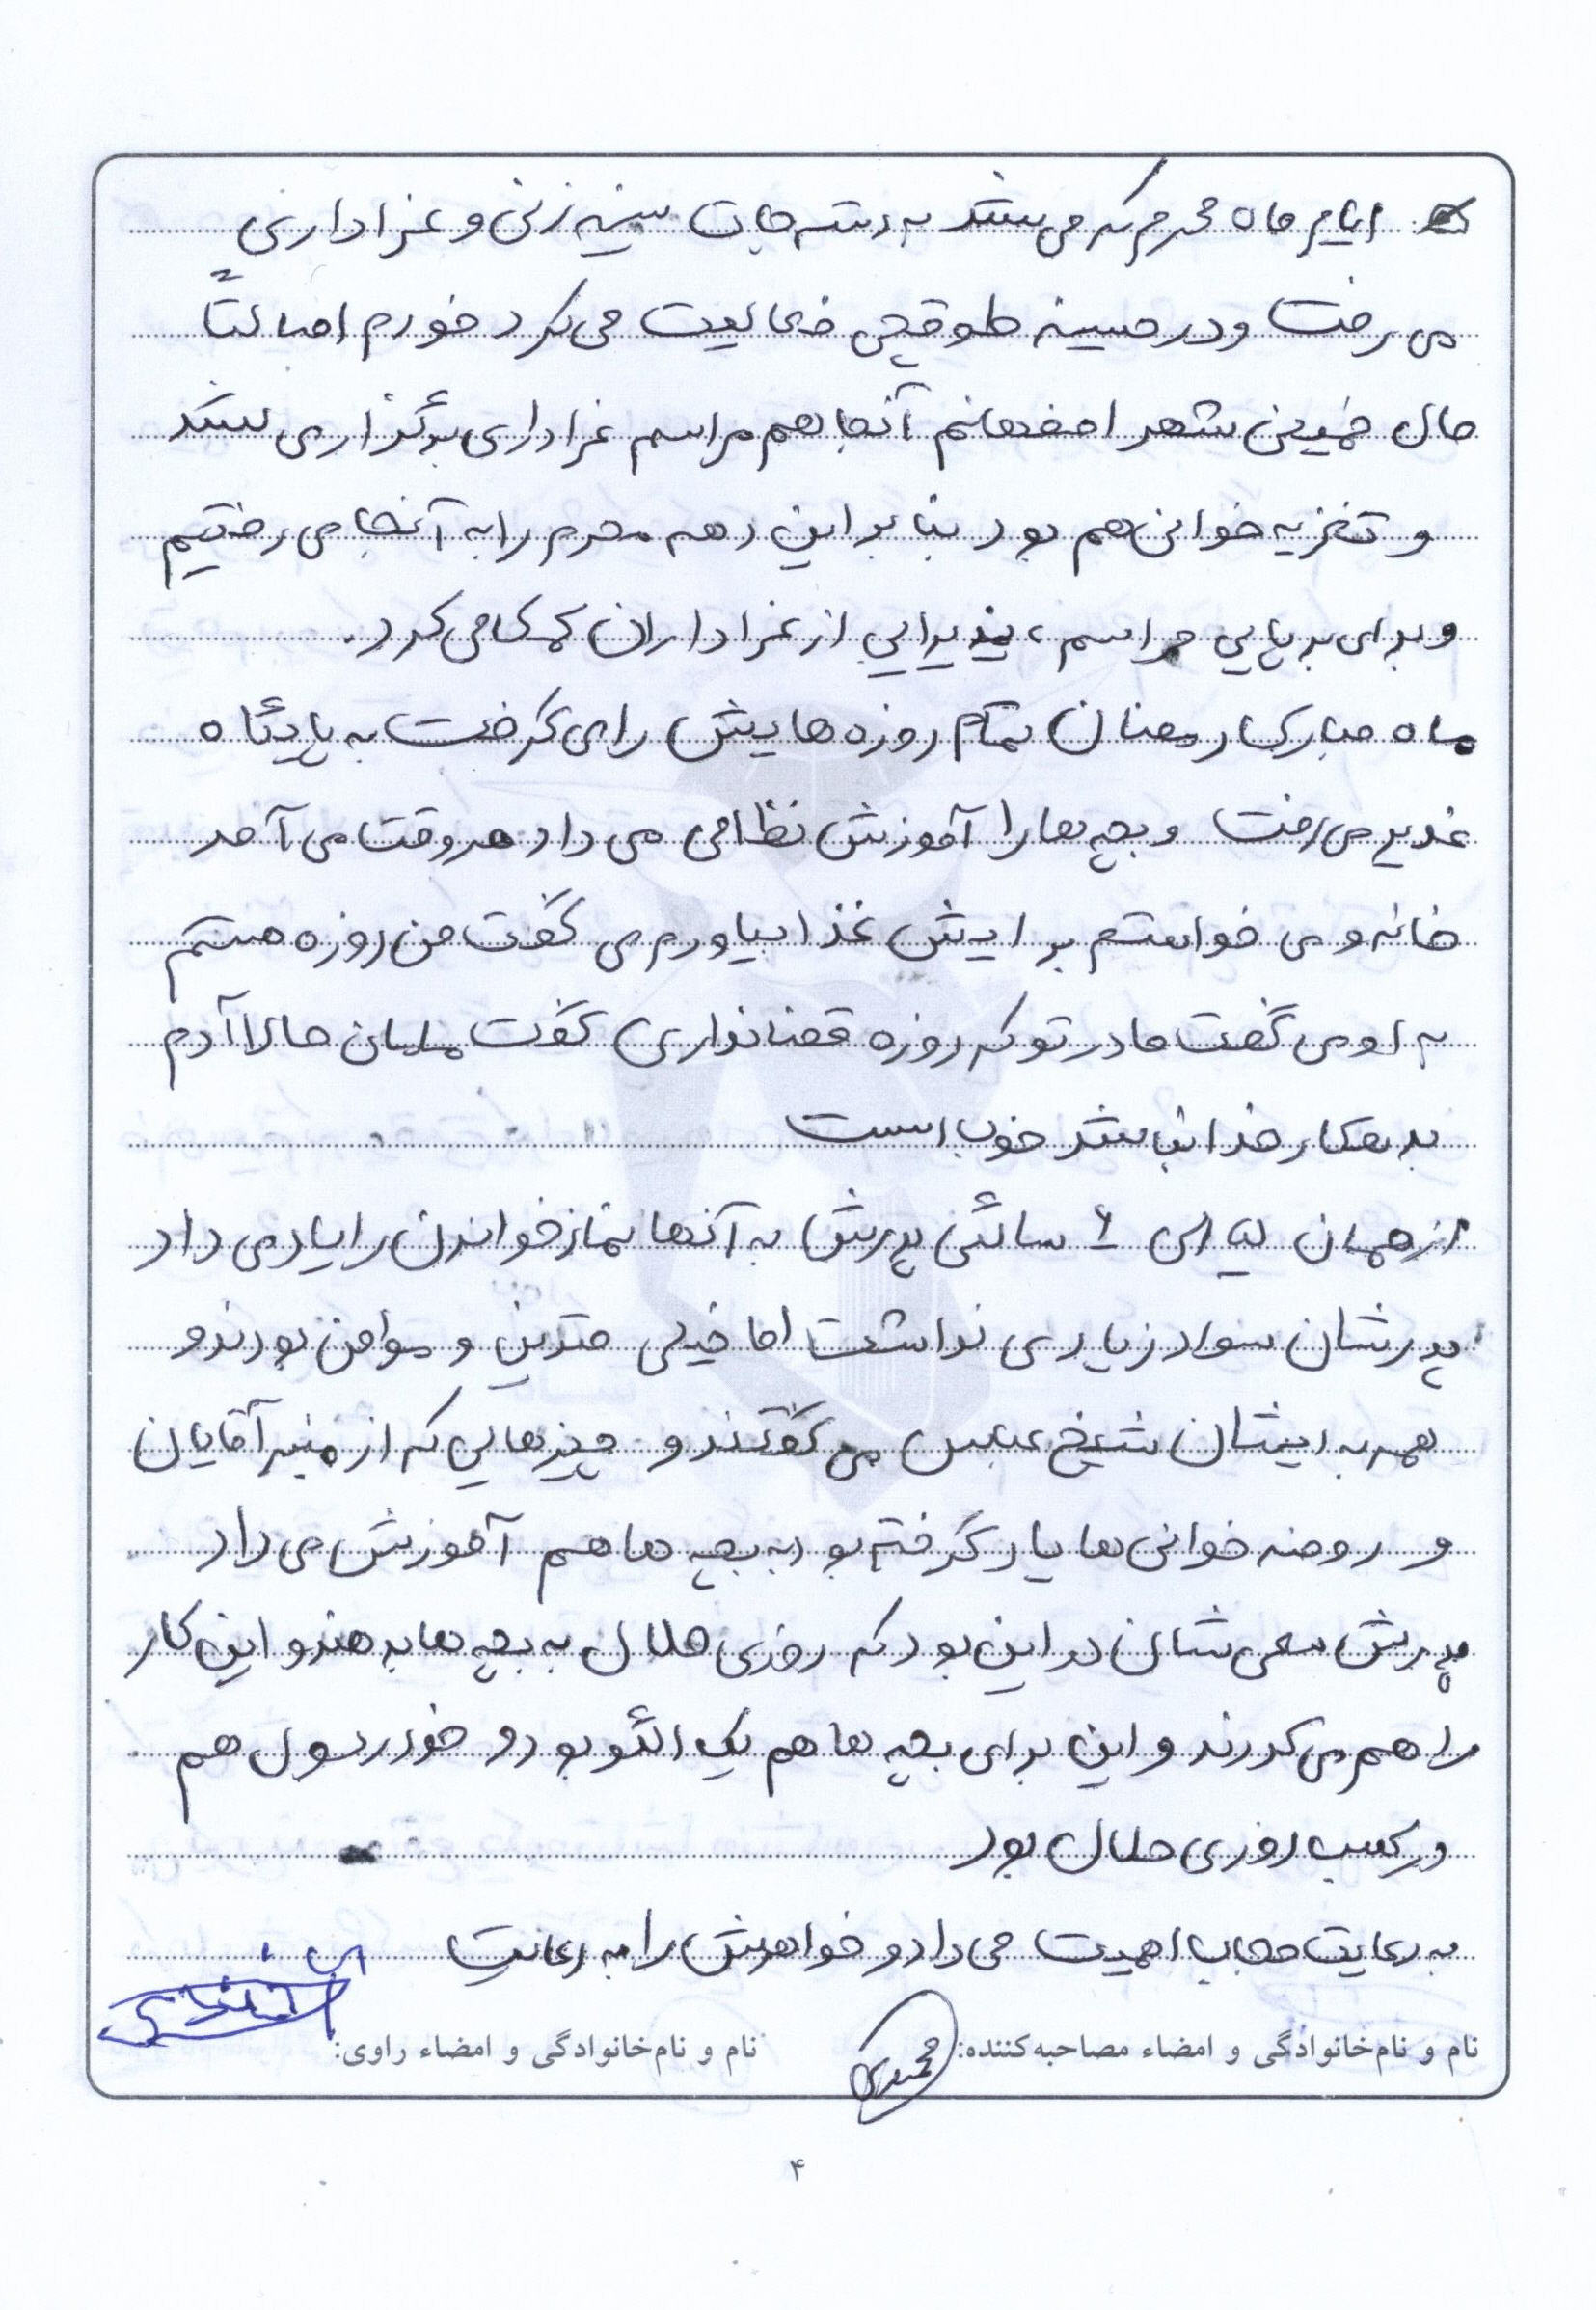 ایام ماه محرم که می شد به دسته جات سینه زنی و عزاداری
می رفت و در حسینه طوقچی فعالیت می کرد خودم اصالتاً
مال خمینی شهر اصفهانم آنجا هم مراسم عزاداری برگذار می شد
و تعزیه خوانی هم بود بنابراین دهه محرم را به آنجا می رفتیم
و برای برپایی مراسم، پذیرایی از عزاداران کمک می کرد.
ماه مبارک رمضان تمام روزه هایش را می گرفت به پایگاه
غدیر می رفت و بچه ها را آموزش نظامی می داد هر وقت می آمد
خانه و می خواستم برایش غذا بیاورم می گفت من روزه هستم
به او می گفت مادر تو که روزه قضا نداری گفت مامان حالا آدم
بدهکار خدا نباشد خوب است
از همان ۶ سالگی پدرش به آنها نماز خواندن را یاد می داد
پدرشان سواد زیادی نداشت اما خیلی متدین و مؤمن بودند و
همه به ایشان شیخ عباس می گفتند و چیزهایی که از منبر آقایان
و روضه خوانی ها یاد گرفته بود به بچه ها هم آموزش می داد
پدرش سعی شان در این بود که روزی حلال به بچه ها بدهند و این کار
را هم می کردند و این برای بچه ها هم یک الگو بود و خود رسول هم
در کسب روزی حلال بود
به رعایت حجاب اهمیت می داد و خواهرش را به رعایت
نام و نام‌خانوادگی و امضاء مصاحبه‌کننده:
نام و نام‌خانوادگی و امضاء راوی:
۴